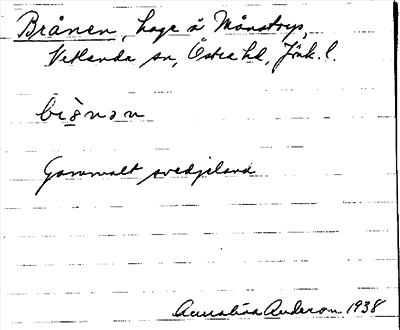 Brånen, hage å Månstorp,
Vetlanda sn, Östra hd, Jönk. l.
Gammalt svedjeland
Annalisa Anderson 1938